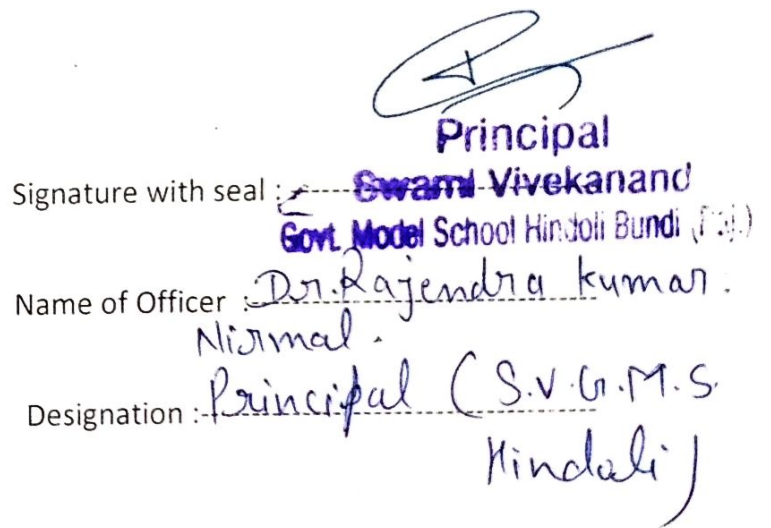 Principal
Signature with seal : Swami Vivekanand
Govt. Model School Hindoli Bundi (Raj.)
Name of Officer : Dr. Rajendra kumar.
Nirmal.
Designation : Principal (S.V.G.M.S.
Hindoli)